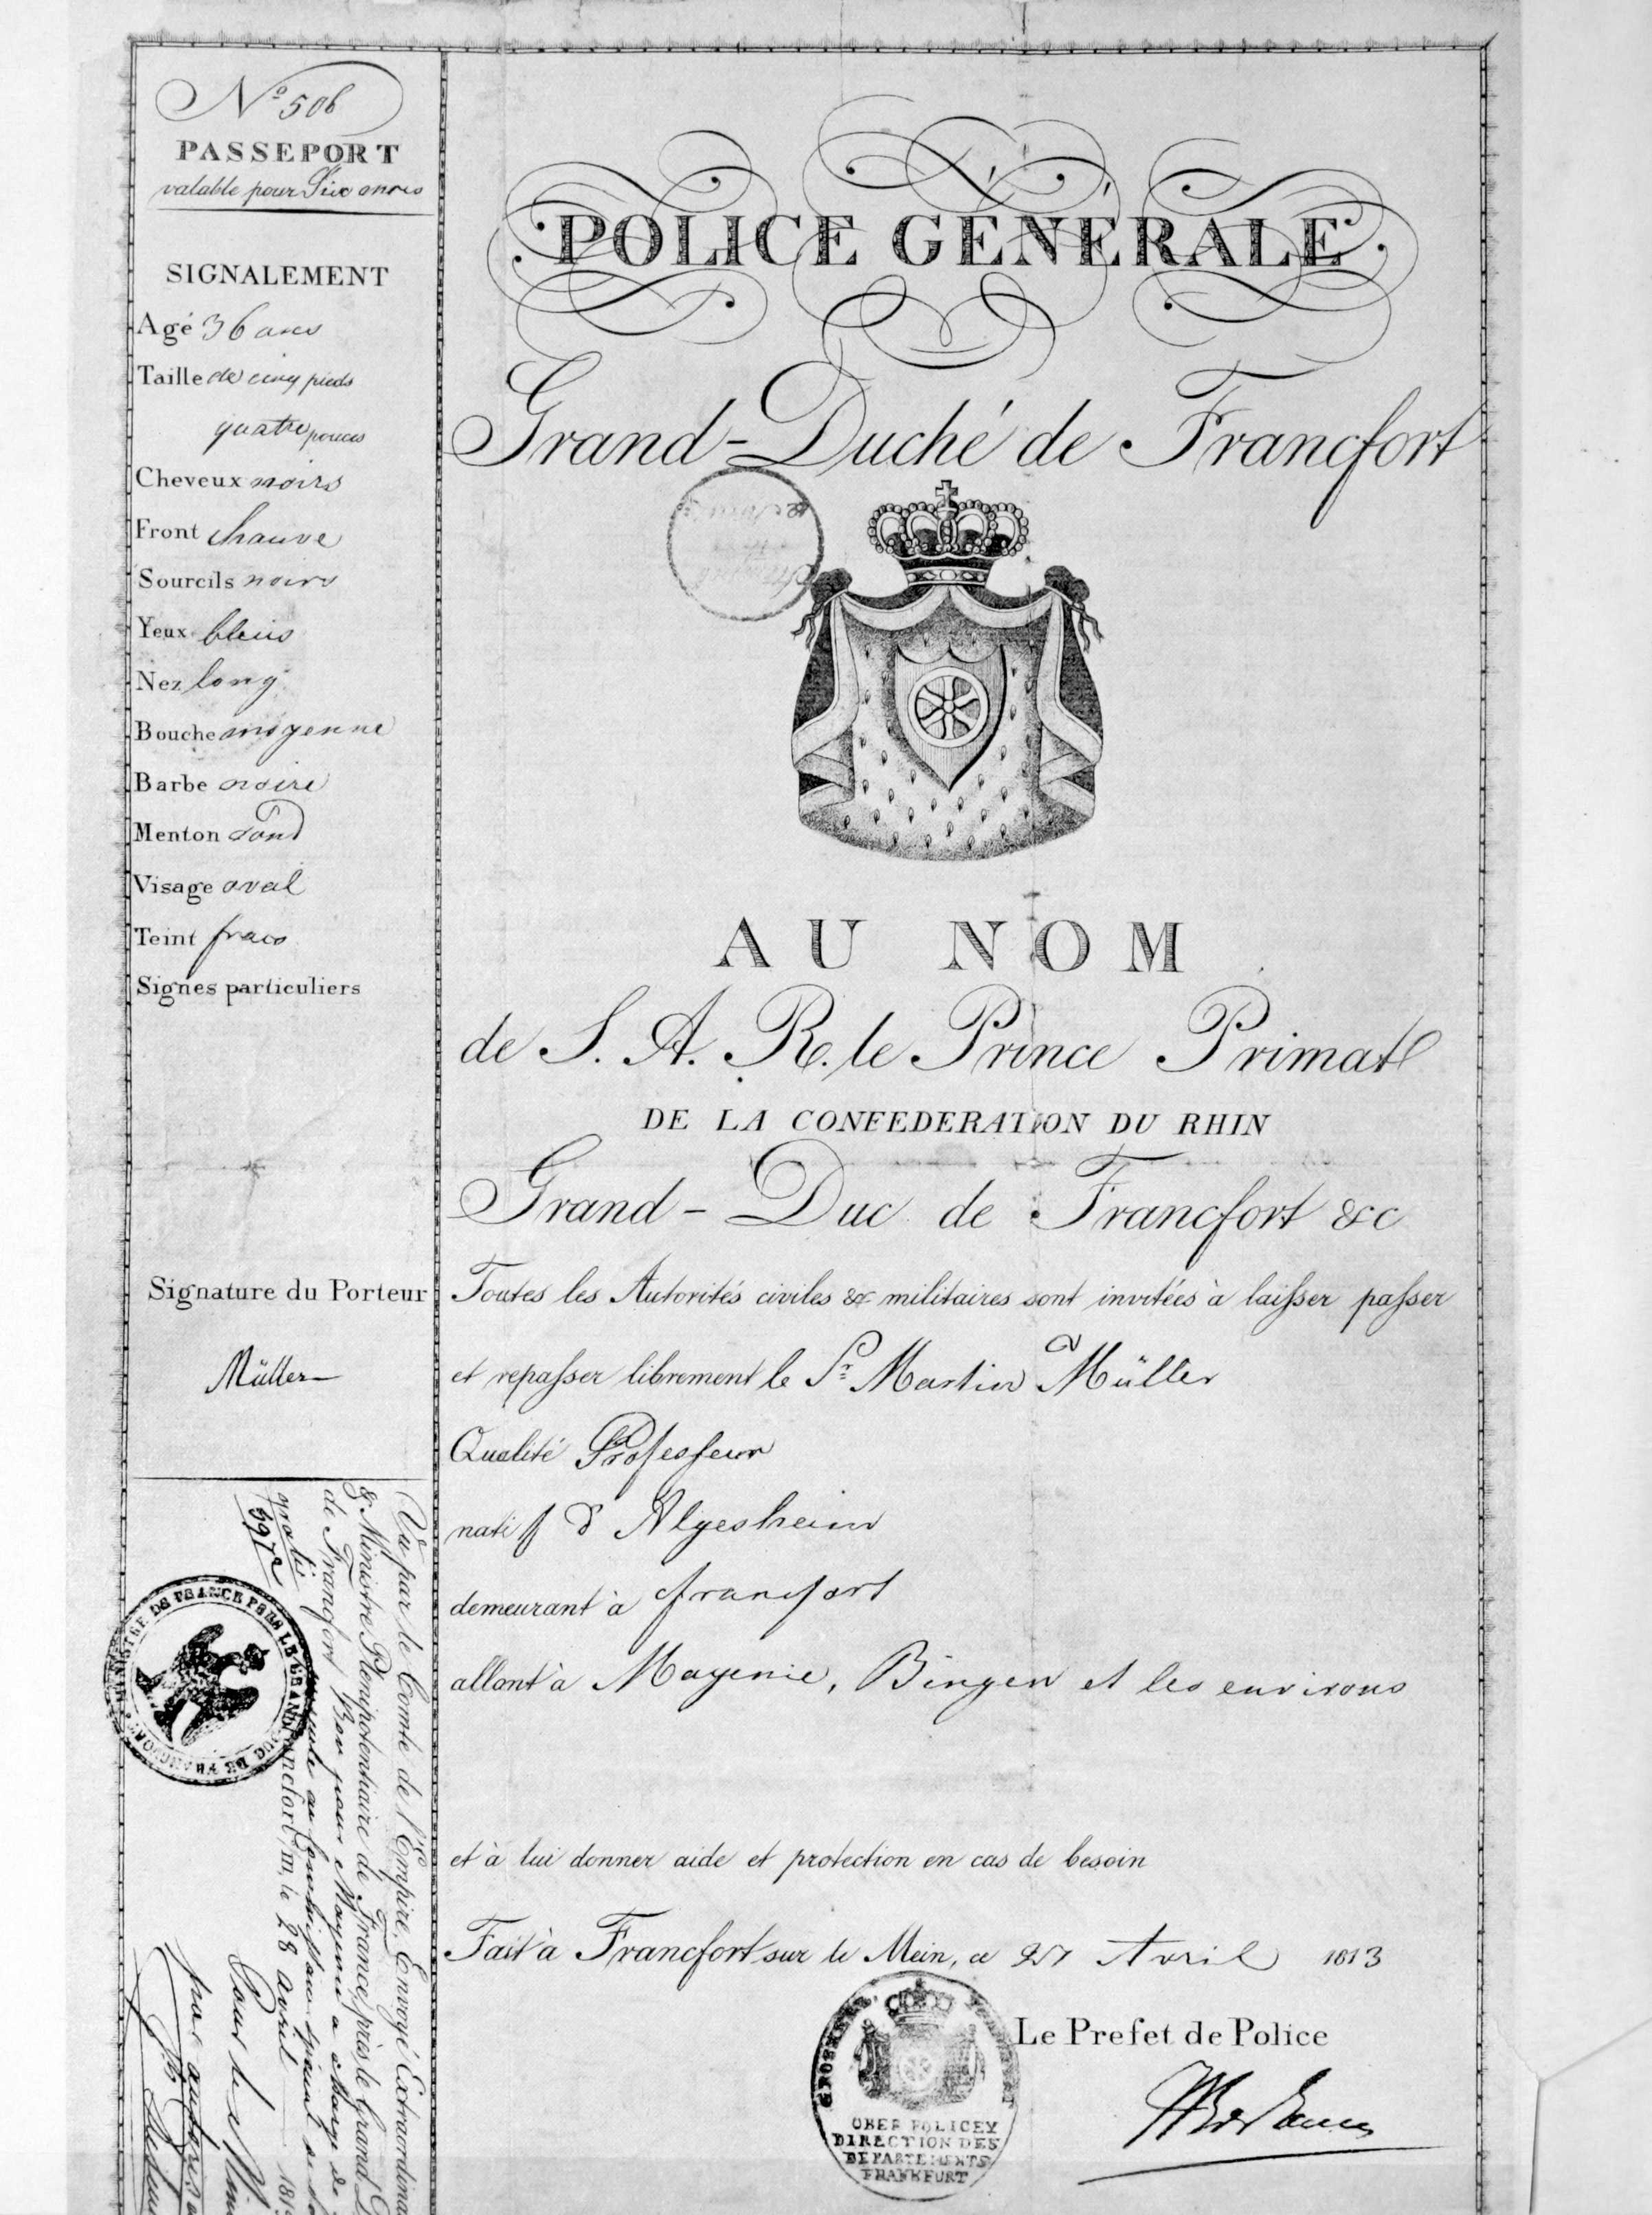 Nº 506
PASSEPORT
valable pour Six mois
SIGNALEMENT
Agé 36 ans
Taille de cinq pieds
quatre pouces
Cheveux noirs
Front chauve
Sourcils noirs
Yeux bleus
Nez long
Bouche moyenne
Barbe noire
Menton rond
Visage oval
Teint frais
Signes particuliers
Signature du Porteur
Müller
POLICE GÉNÉRALE
Grand-Duché de Francfort
AU NOM
de S. A. R. le Prince Primat
DE LA CONFEDERATION DU RHIN
Grand-Duc de Francfort &c
Toutes les Autorités civiles & militaires sont invitées à laisser passer
et repasser librement le Sr. Martin Müller
Qualité Professeur
natif d'Algesheim
demeurant à francfort
allant à Mayence, Bingen et les environs
et à lui donner aide et protection en cas de besoin
Fait à Francfort sur le Mein, ce 27 Avril 1813
Le Prefet de Police
OBER POLICEY
DIRECTION DES
DEPARTEMENTS
FRANKFURT
Vu par le Comte de l'Empire, Envoyé
& Ministre Plenipotentiaire de France, près le Grand
de Francfort Bon pour Mayence a charge de
28 avril
gratis
597
MINISTRE DE FRANCE PRES LE GRAND DUC DE
Pour le
par